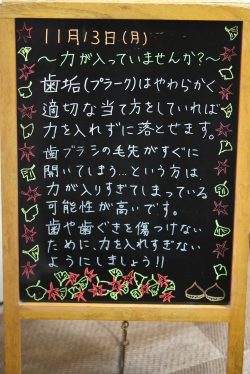 11月13日(月)
～力が入っていませんか?～
歯垢(プラーク)はやわらかく
適切な当て方をしていれば
力を入れずに落とせます。
歯ブラシの毛先がすぐに
開いてしまう…という方は
力が入りすぎてしまっている
可能性が高いです。
歯や歯ぐきを傷つけない
ために、力を入れすぎない
ようにしましょう!!